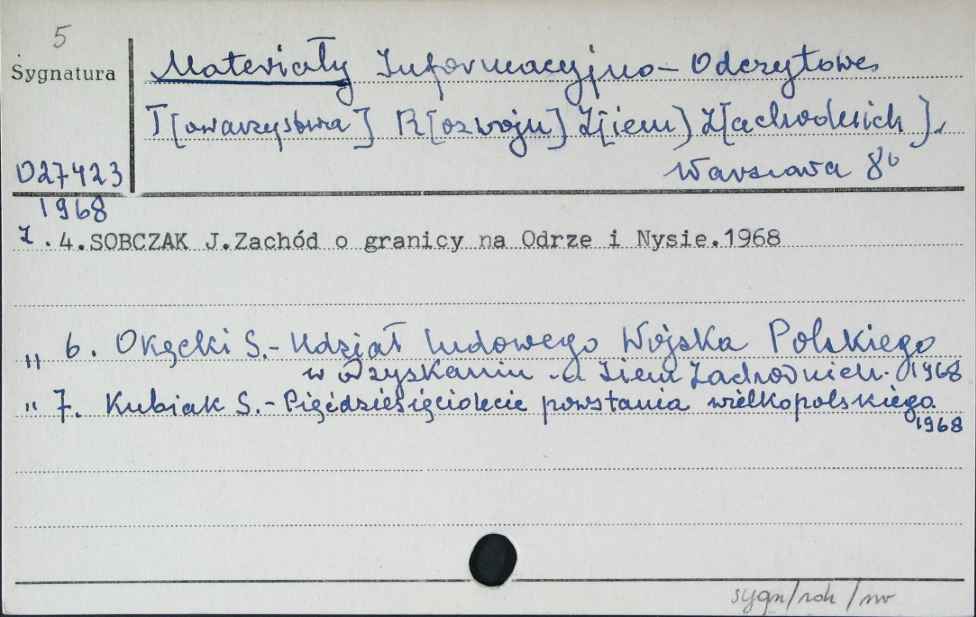 5
Sygnatura
Materiały Informacyjno-Odczytowe
T[owarzystwa] R[ozwoju] Z[iem] Z[achodnich].
Warszawa 8°
027423
1968
Z.4.SOBCZAK J.Zachód o granicy na Odrze i Nysie.1968
" 6. Okęcki S.- Udział ludowego Wojska Polskiego
w odzyskaniu Ziem Zachodnich. 1968
" 7. Kubiak S.- Pięćdziesięciolecie powstania wielkopolskiego
1968
sygn/rok/nr